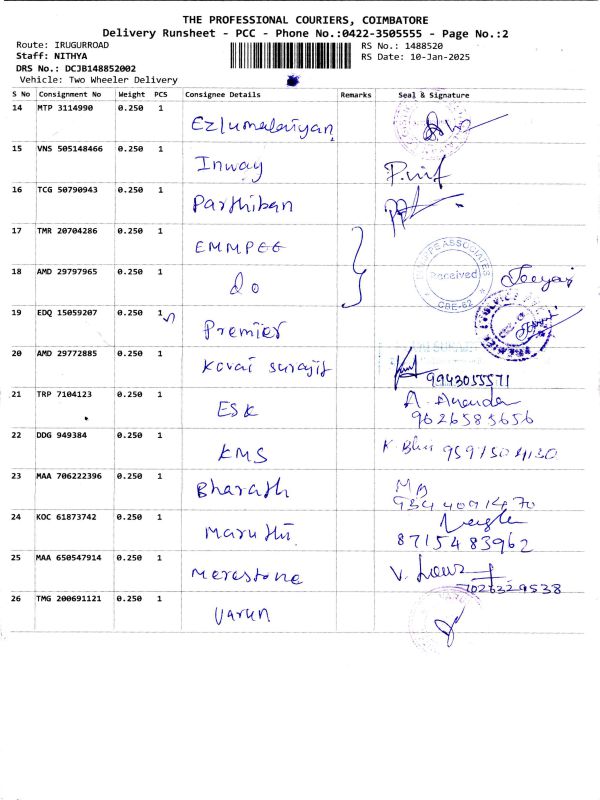 THE PROFESSIONAL COURIERS, COIMBATORE
Delivery Runsheet - PCC - Phone No.:0422-3505555 - Page No.:2
Route: IRUGURROAD
RS No.: 1488520
Staff: NITHYA
RS Date: 10-Jan-2025
DRS No.: DCJB148852002
Vehicle: Two Wheeler Delivery
S No Consignment No Weight PCS Consignee Details Remarks Seal & Signature
14 MTP 3114990 0.250 1 Ezlumalaiyan
15 VNS 505148466 0.250 1 Inway
16 TCG 50790943 0.250 1 Parthiban
17 TMR 20704286 0.250 1 EMMPEE
18 AMD 29797965 0.250 1 do
ASSOCIATES
Received
CBE-62
19 EDQ 15059207 0.250 1 Premier
20 AMD 29772885 0.250 1 Kovai Surajit
9943055571
21 TRP 7104123 0.250 1 ESK
9626585656
22 DDG 949384 0.250 1 KMS
23 MAA 706222396 0.250 1 Bharath
24 KOC 61873742 0.250 1 Maruthi
8715483962
25 MAA 650547914 0.250 1 Merestone
7026329538
26 TMG 200691121 0.250 1 Varun